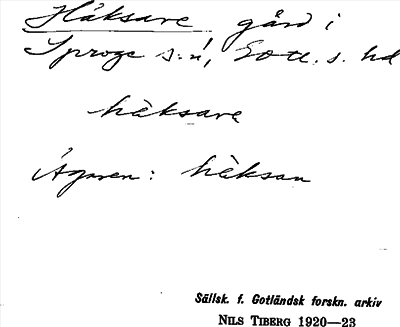 Häksare gård i
Sproge s:n, Gotl. s. hd
häksarę
Ägaren: hàksan
Sällsk. f. Gotländsk forskn. arkiv
NILS TIBERG 1920—23